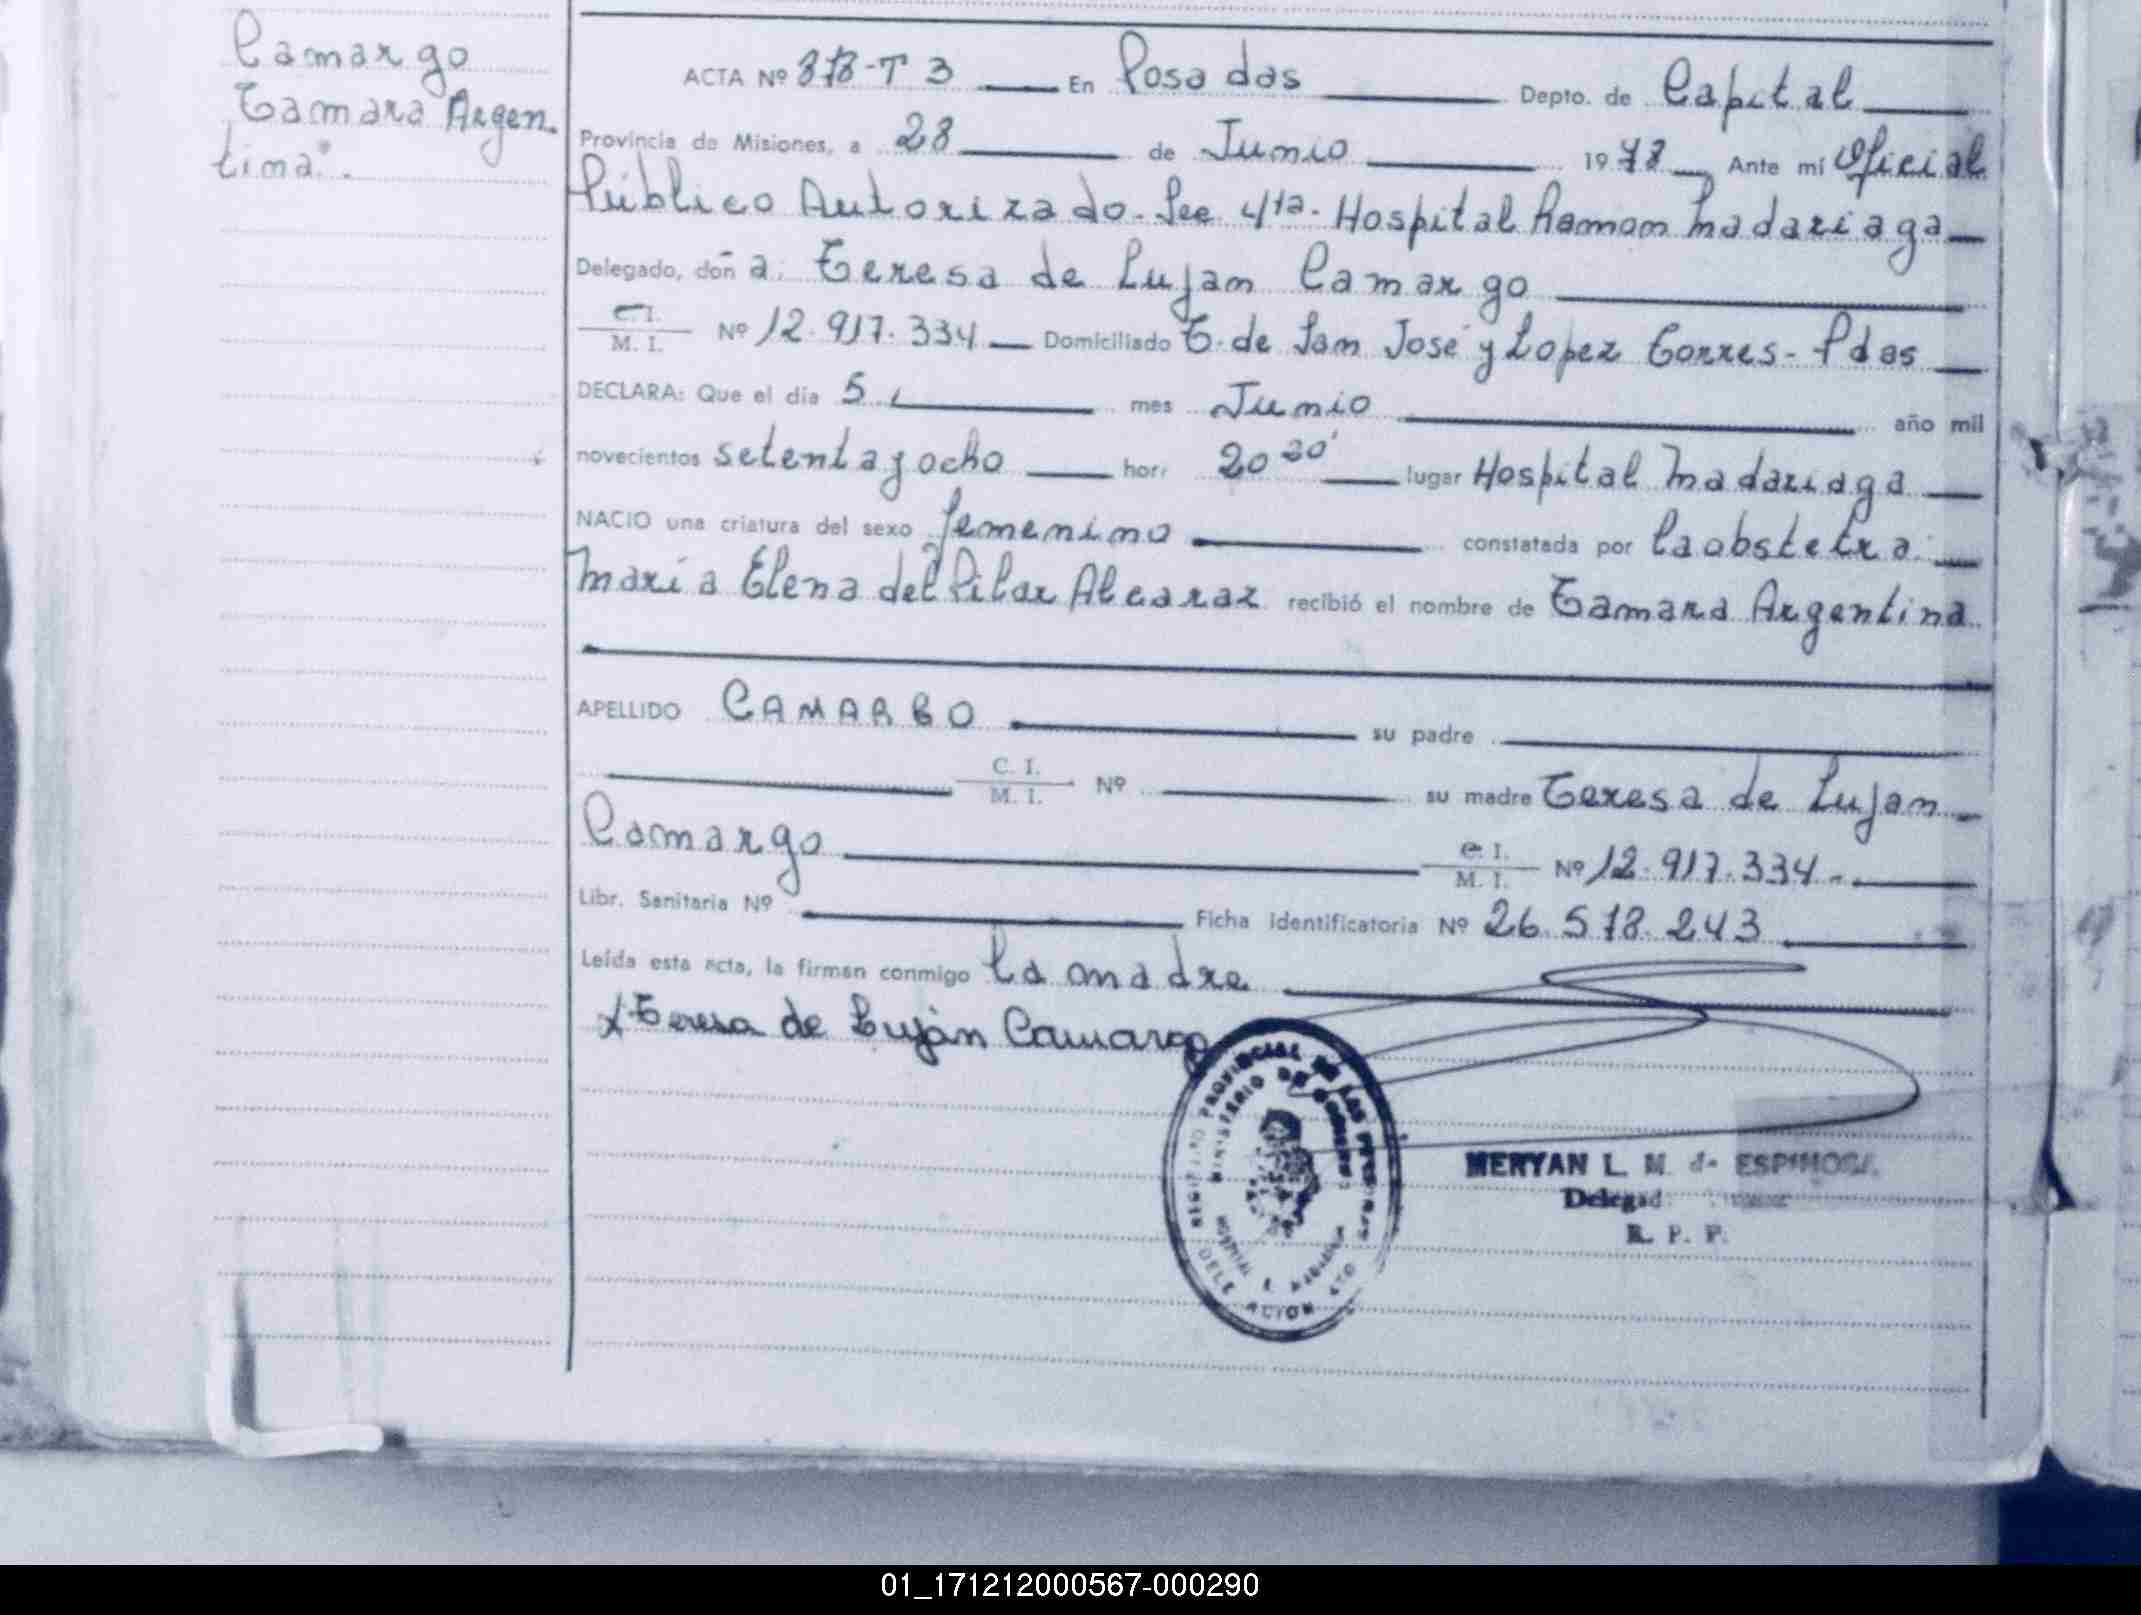 Camargo
Tamara Argen.
tina".
ACTA Nº 878-T 3 En Posadas Depto. de Capital
Provincia de Misiones, a 28 de Junio 1978 Ante mí Oficial
Público Autorizado. Sec 4ta. Hospital Ramon Madariaga
Delegado, doña. Teresa de Lujan Camargo
C.I.
M. I. Nº 12.917.334 Domiciliado T. de San José y Lopez Torres - Pdas
DECLARA: Que el día 5 mes Junio año mil
novecientos setenta y ocho hor. 20 30' lugar Hospital Madariaga
NACIO una criatura del sexo femenino constatada por la obstetra.
María Elena del Pilar Alcaraz recibió el nombre de Tamara Argentina.
APELLIDO CAMARGO su padre
C. I.
M. I. Nº su madre Teresa de Lujan
Camargo C. I.
M. I. Nº 12.917.334.-
Libr. Sanitaria Nº Ficha Identificatoria Nº 26.518.243
Leída esta acta, la firman conmigo la madre
x Teresa de Luján Camargo
PROVINCIAL DE LAS PERSONAS
MINISTERIO DE GOBIERNO
HOSPITAL R. MADARIAGA
MERYAN L. M. de ESPINOSA
R. P. P.
01_171212000567-000290